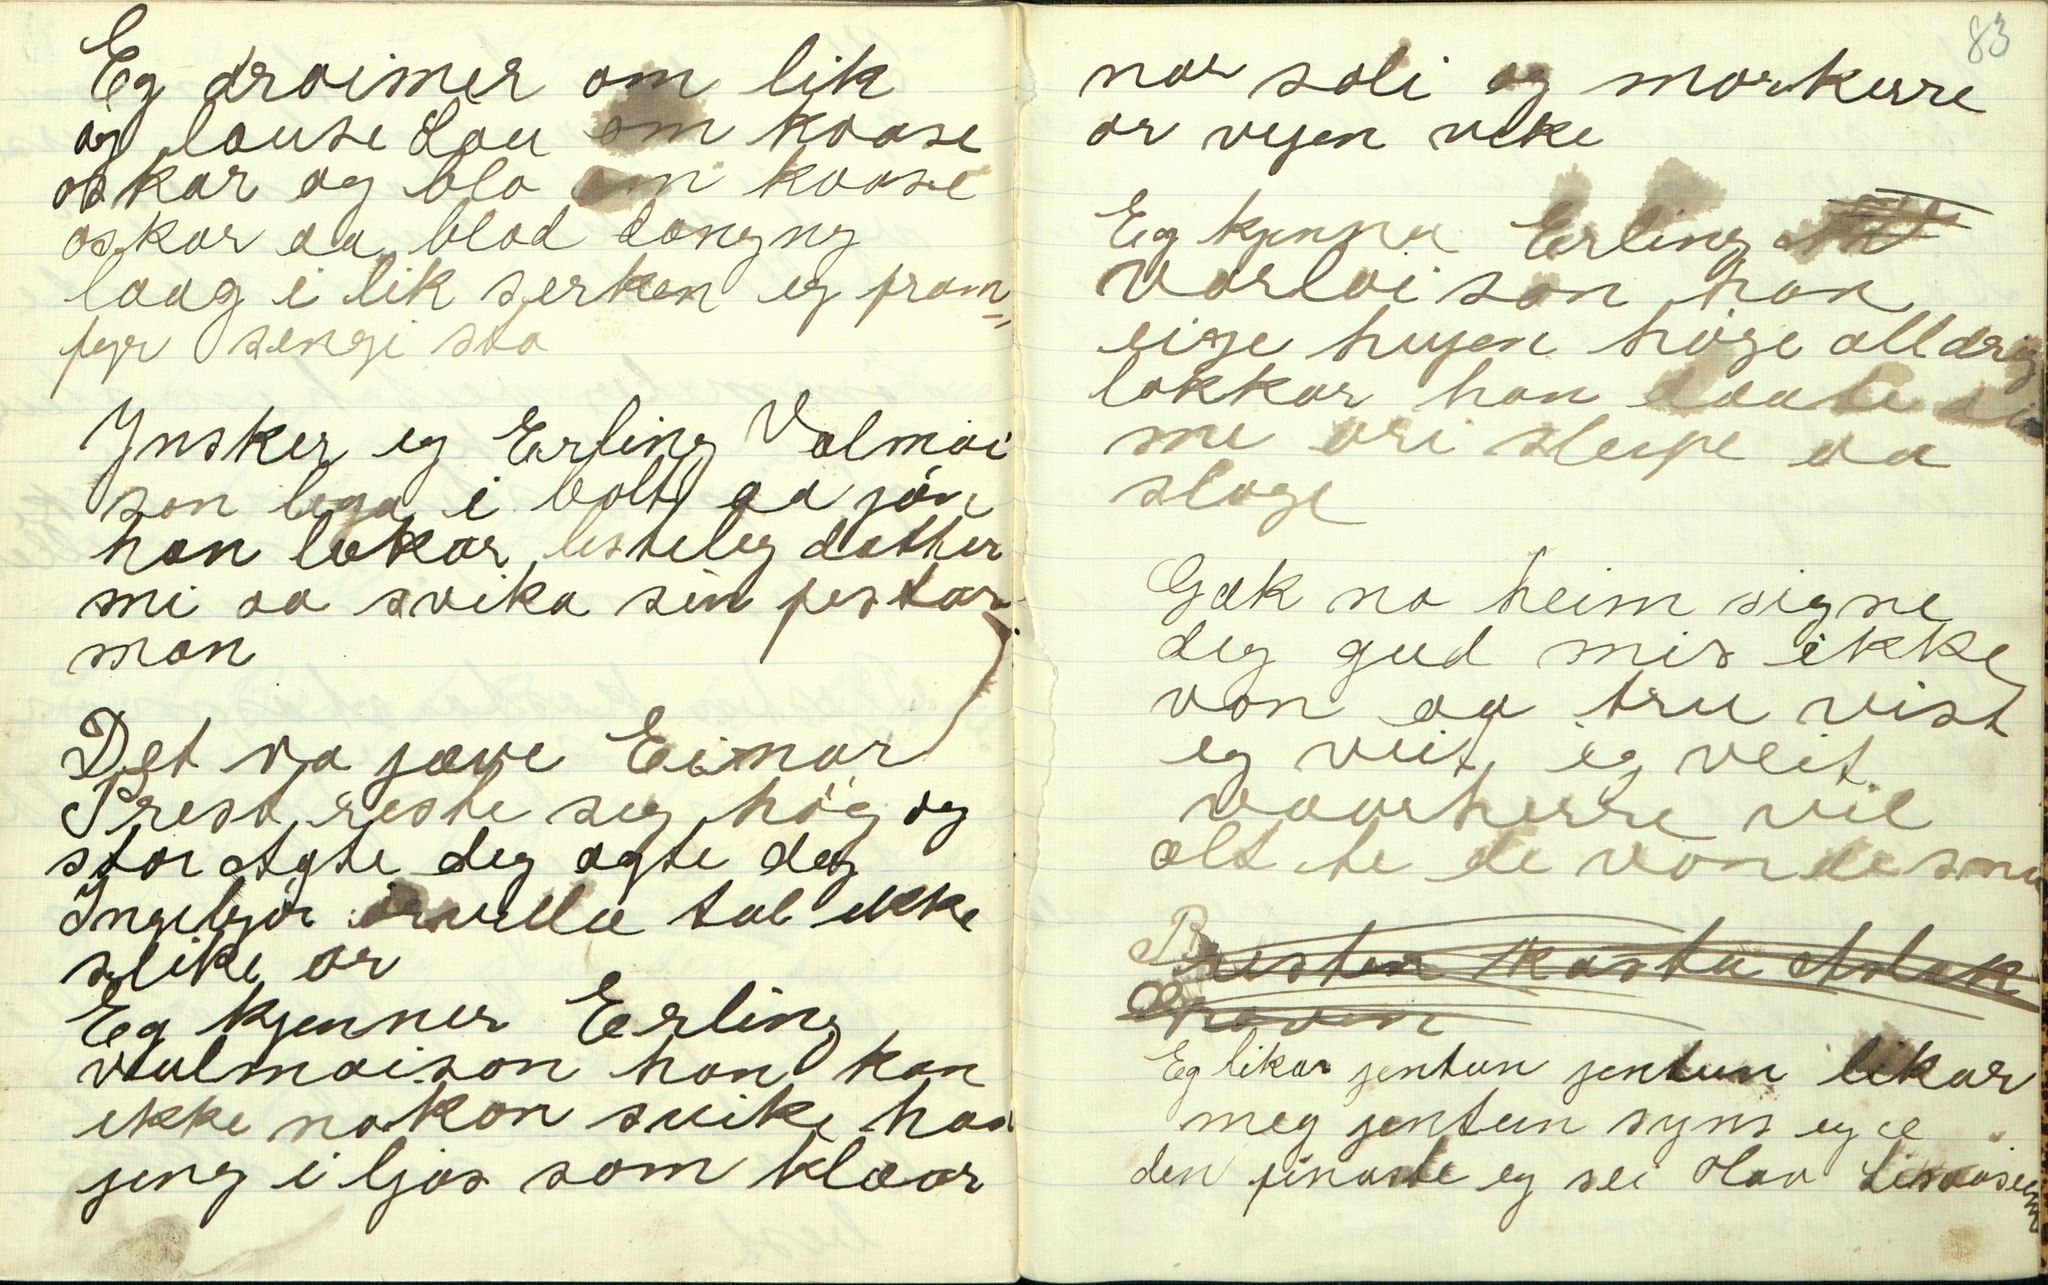 Eg droimer om lik
og louse Lou om koase
oskar og blo om koase
oskar aa blod dongng
laag i lik serken eg fram
fyr sengi sto
Ynsker eg Erling Valmoi
son lega i bolt aa jón
han lokar listeleg dotter
mi aa svika sin festar
man
Det va gjæve Einar
Prest reste seg høg og
stor Agte deg agte deg
Ingebjør tal ikke
slike or
Eg kjenner Erling
valmoison han kan
ikke nokon svike han
jeng i ljos som klaar
83
nar soli og morkerre
or vegen veke
Eg kjenna Erling
Vormoi son han
eige hugen høge alldrig
lokkar han
me ori sleipe aa
sloge
Gæk no heim signe
deg gud mis ikke
von aa tru vist
eg veit eg veit
vaarherre vil
alt te de vonde snu
Presten kasta Aslak
Eg likar jentun jentun likar
meg jentun syns eg æ
den finaste eg sei Olav